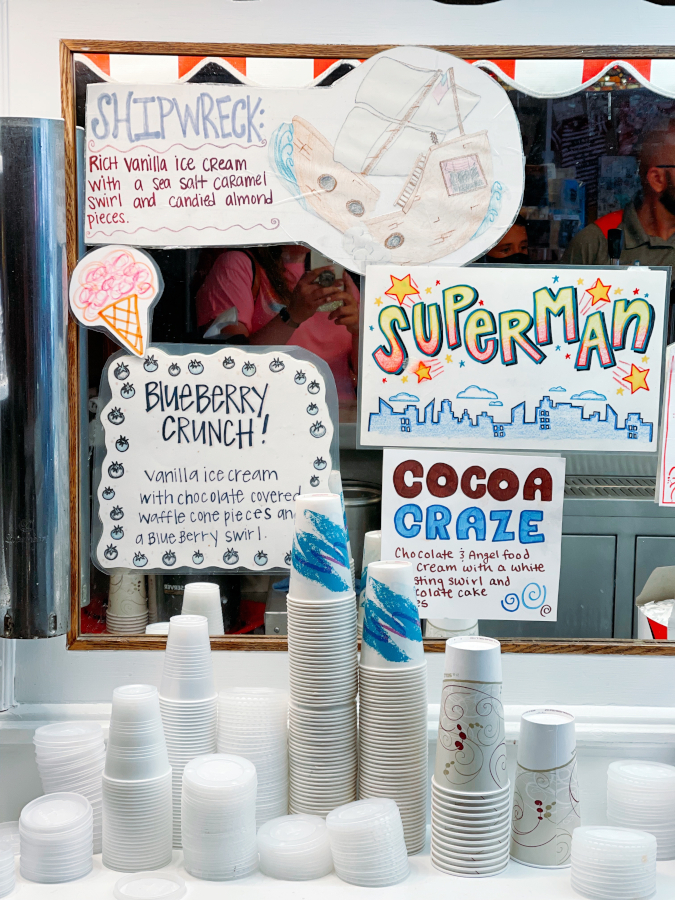 SHIPWRECK:
Rich Vanilla ice cream
with a sea salt caramel
swirl and candied almond
pieces.
SUPERMAN
BLUEBERRY
CRUNCH!
Vanilla ice cream
with chocolate covered
waffle cone pieces an
a Blueberry swirl.
COCOA
CRAZE
Chocolate & Angel food
cream with a white
sting swirl and
colate cake
es